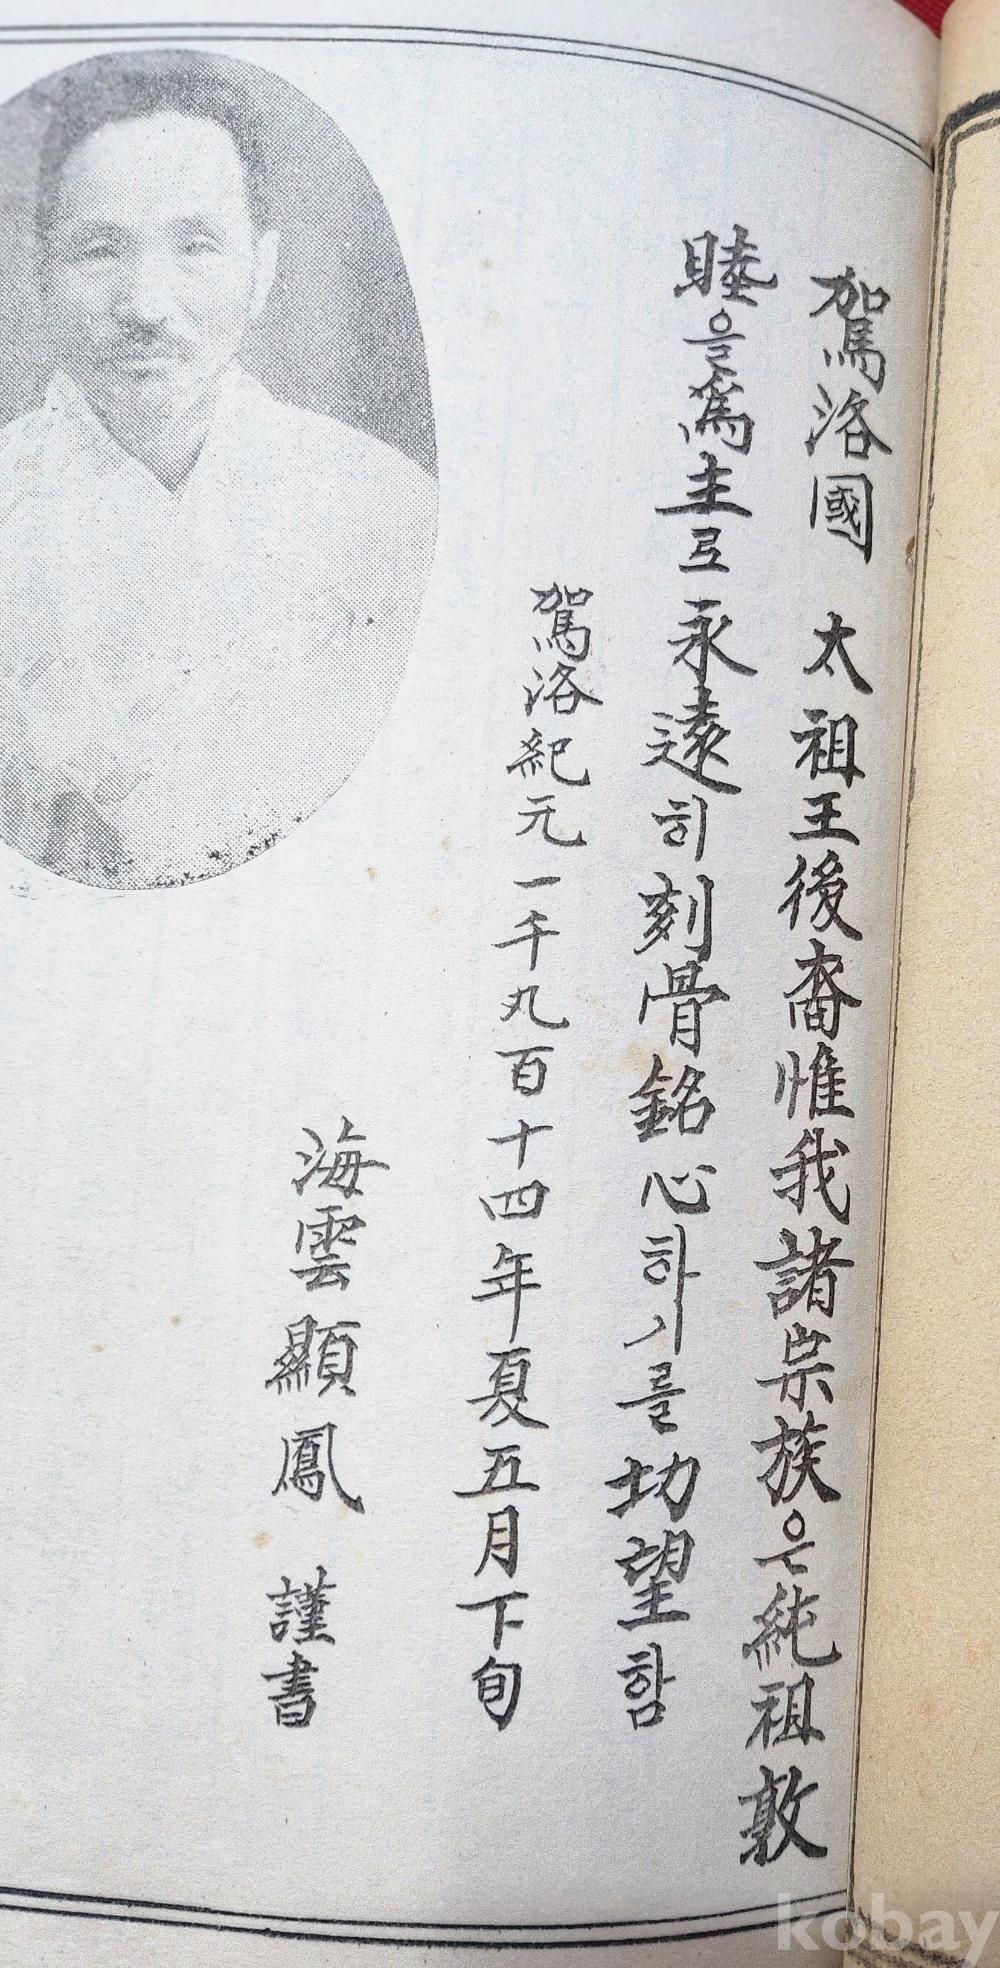 駕洛國 太祖王後裔惟我諸宗族은純祖敦
睦을爲主로永遠히刻骨銘心하기를切望함
駕洛紀元一千九百十四年夏五月下旬
海雲顯鳳 謹書
kobay